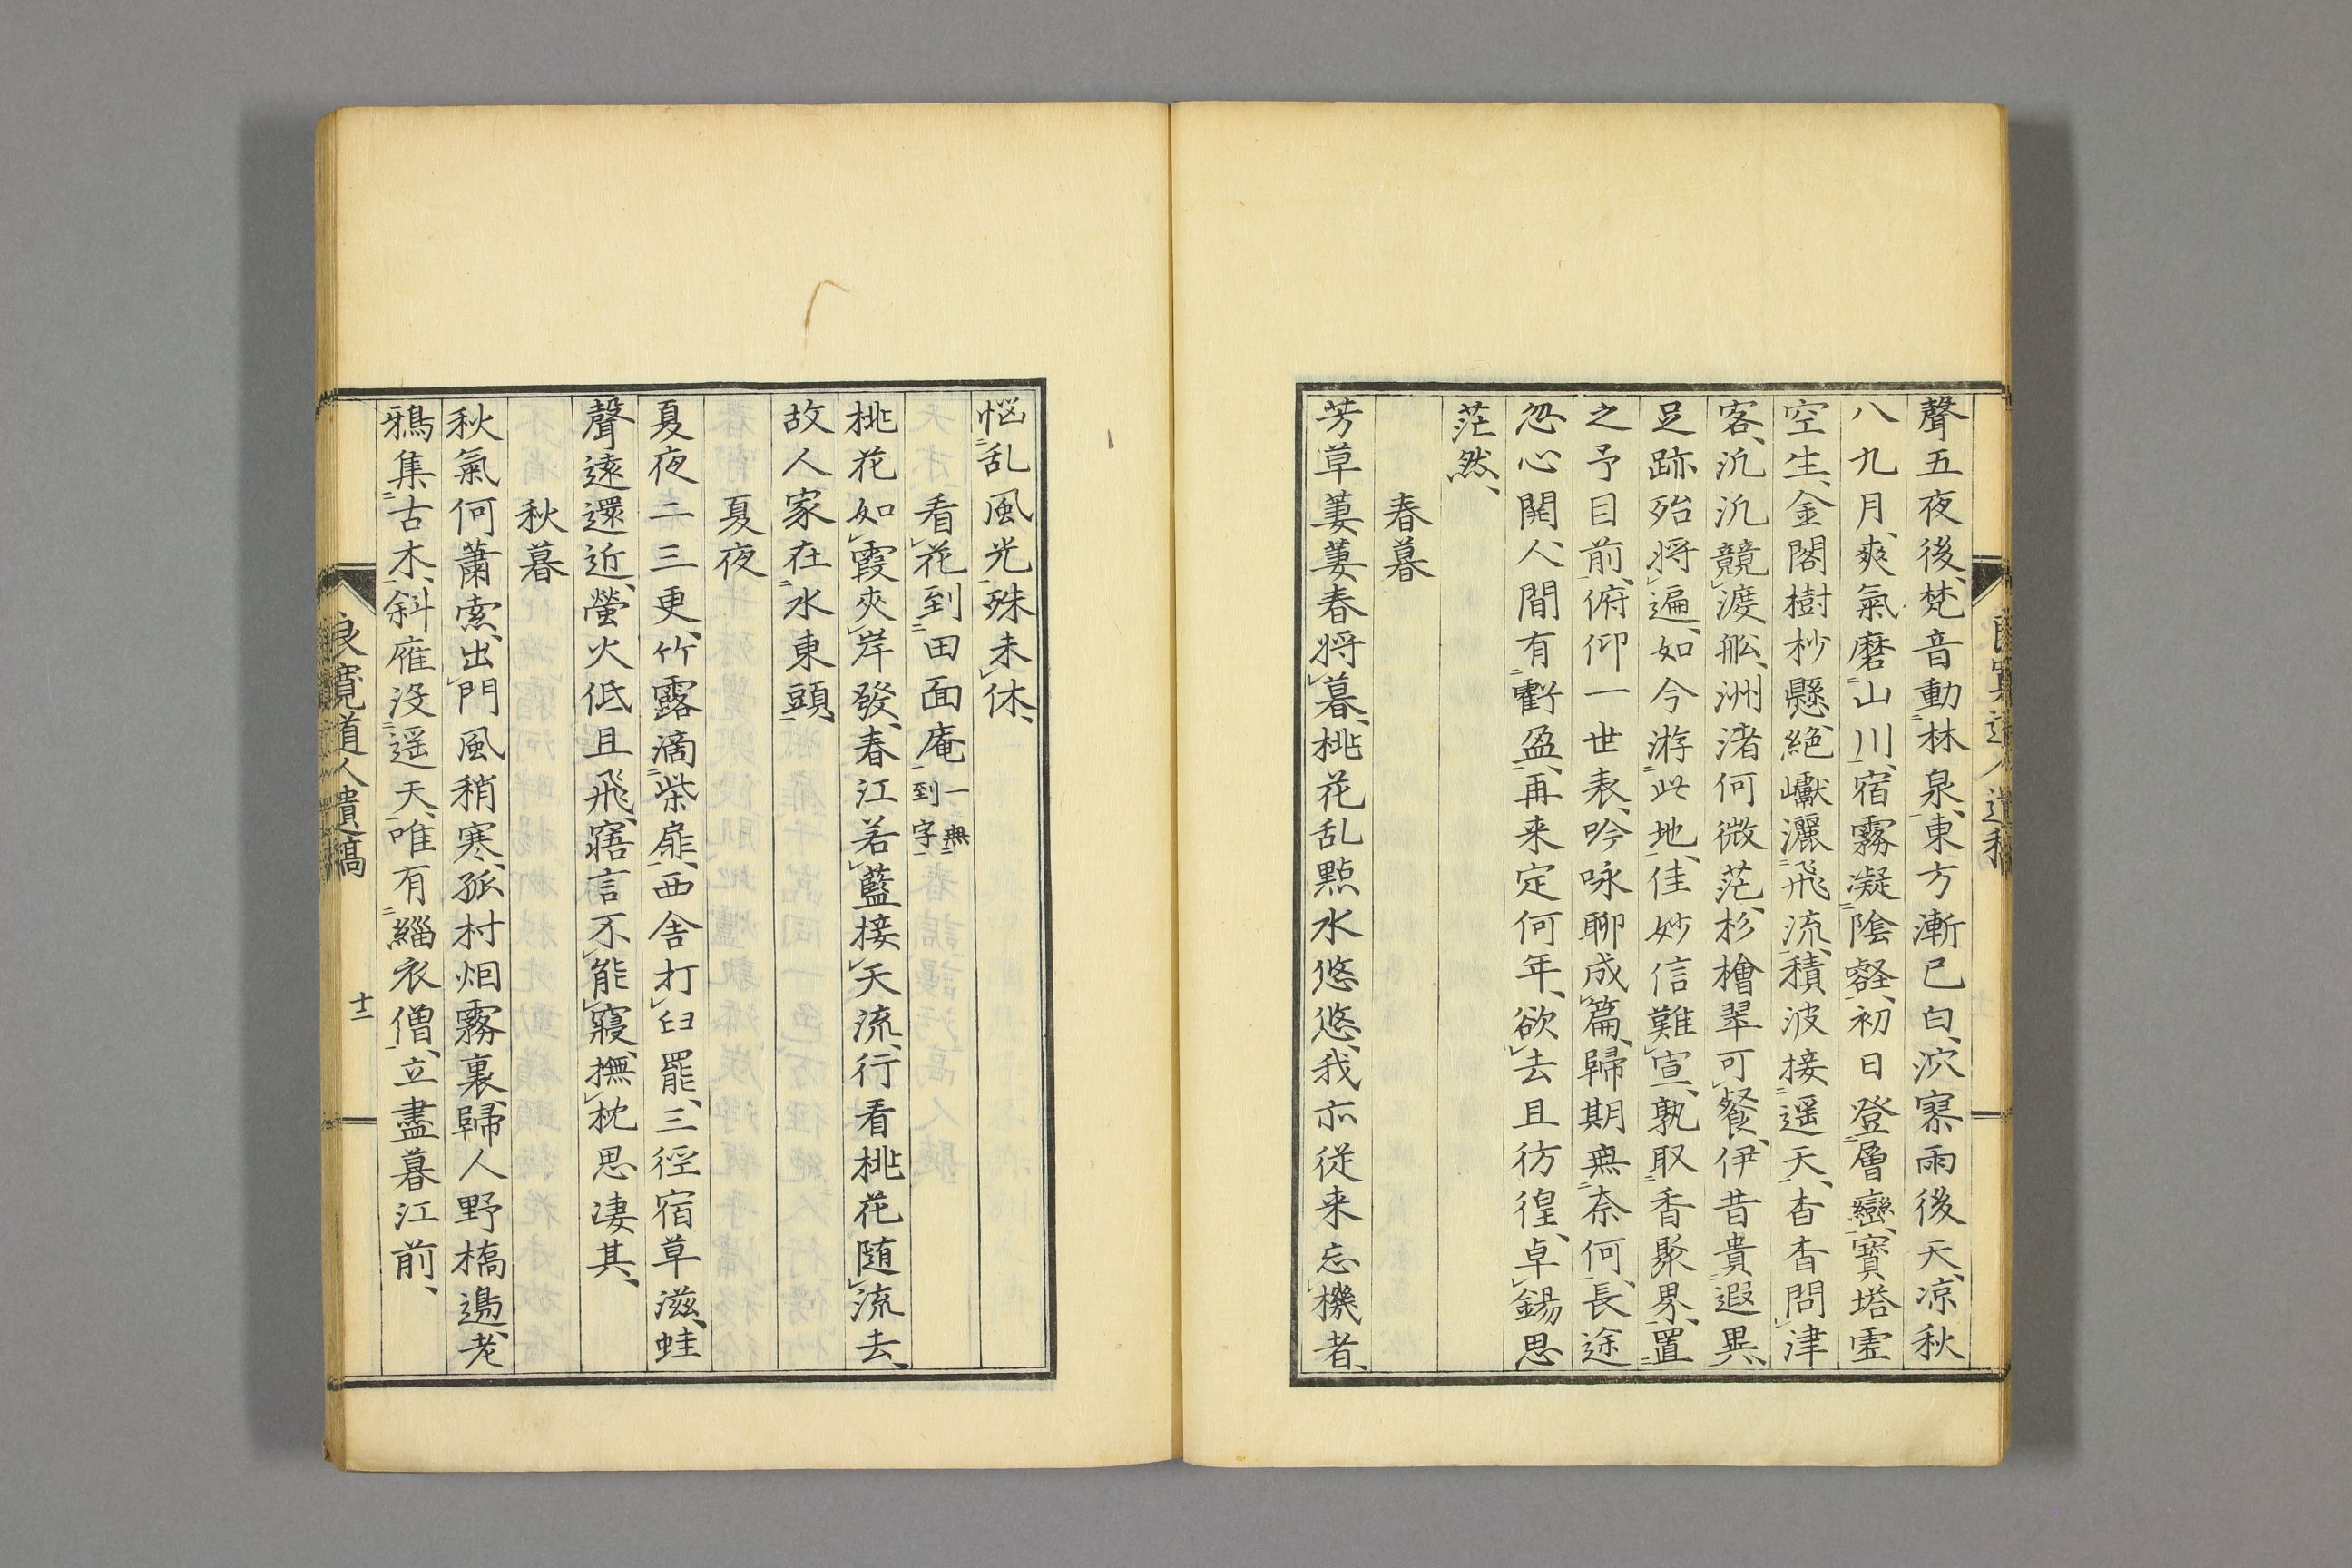 聲五夜後、梵音動林泉、東方漸已白、泬寥雨後天、凉秋
八九月、爽氣磨山川、宿霧凝陰壑、初日登層巒、寶塔虚
空生、金閣樹杪懸、絶巘灑飛流、積波接遥天、杳杳問津
客、汎汎競渡舩、洲渚何微茫、杉檜翠可餐、伊昔貴遐異、
足跡殆将遍、如今游此地、佳妙信難宣、孰取香聚界、置
之予目前、俯仰一世表、吟咏聊成篇、歸期無奈何、長途
忽心関、人間有虧盈、再来定何年、欲去且彷徨、卓錫思
茫然、
春暮
芳草萋萋春将暮、桃花乱點水悠悠、我亦従来忘機者、
悩乱風光殊未休、
看花到田面庵一無到字
桃花如霞夾岸發、春江若藍接天流、行看桃花随流去、
故人家在水東頭、
夏夜
夏夜二三更、竹露滴柴扉、西舎打臼罷、三徑宿草滋、蛙
聲遠還近、螢火低且飛、寤言不能寢、撫枕思凄其、
秋暮
秋氣何蕭索、出門風稍寒、孤村烟霧裏、歸人野橋邊、老
鴉集古木、斜雁没遥天、唯有緇衣僧、立盡暮江前、
良寛道人遺稿
十二